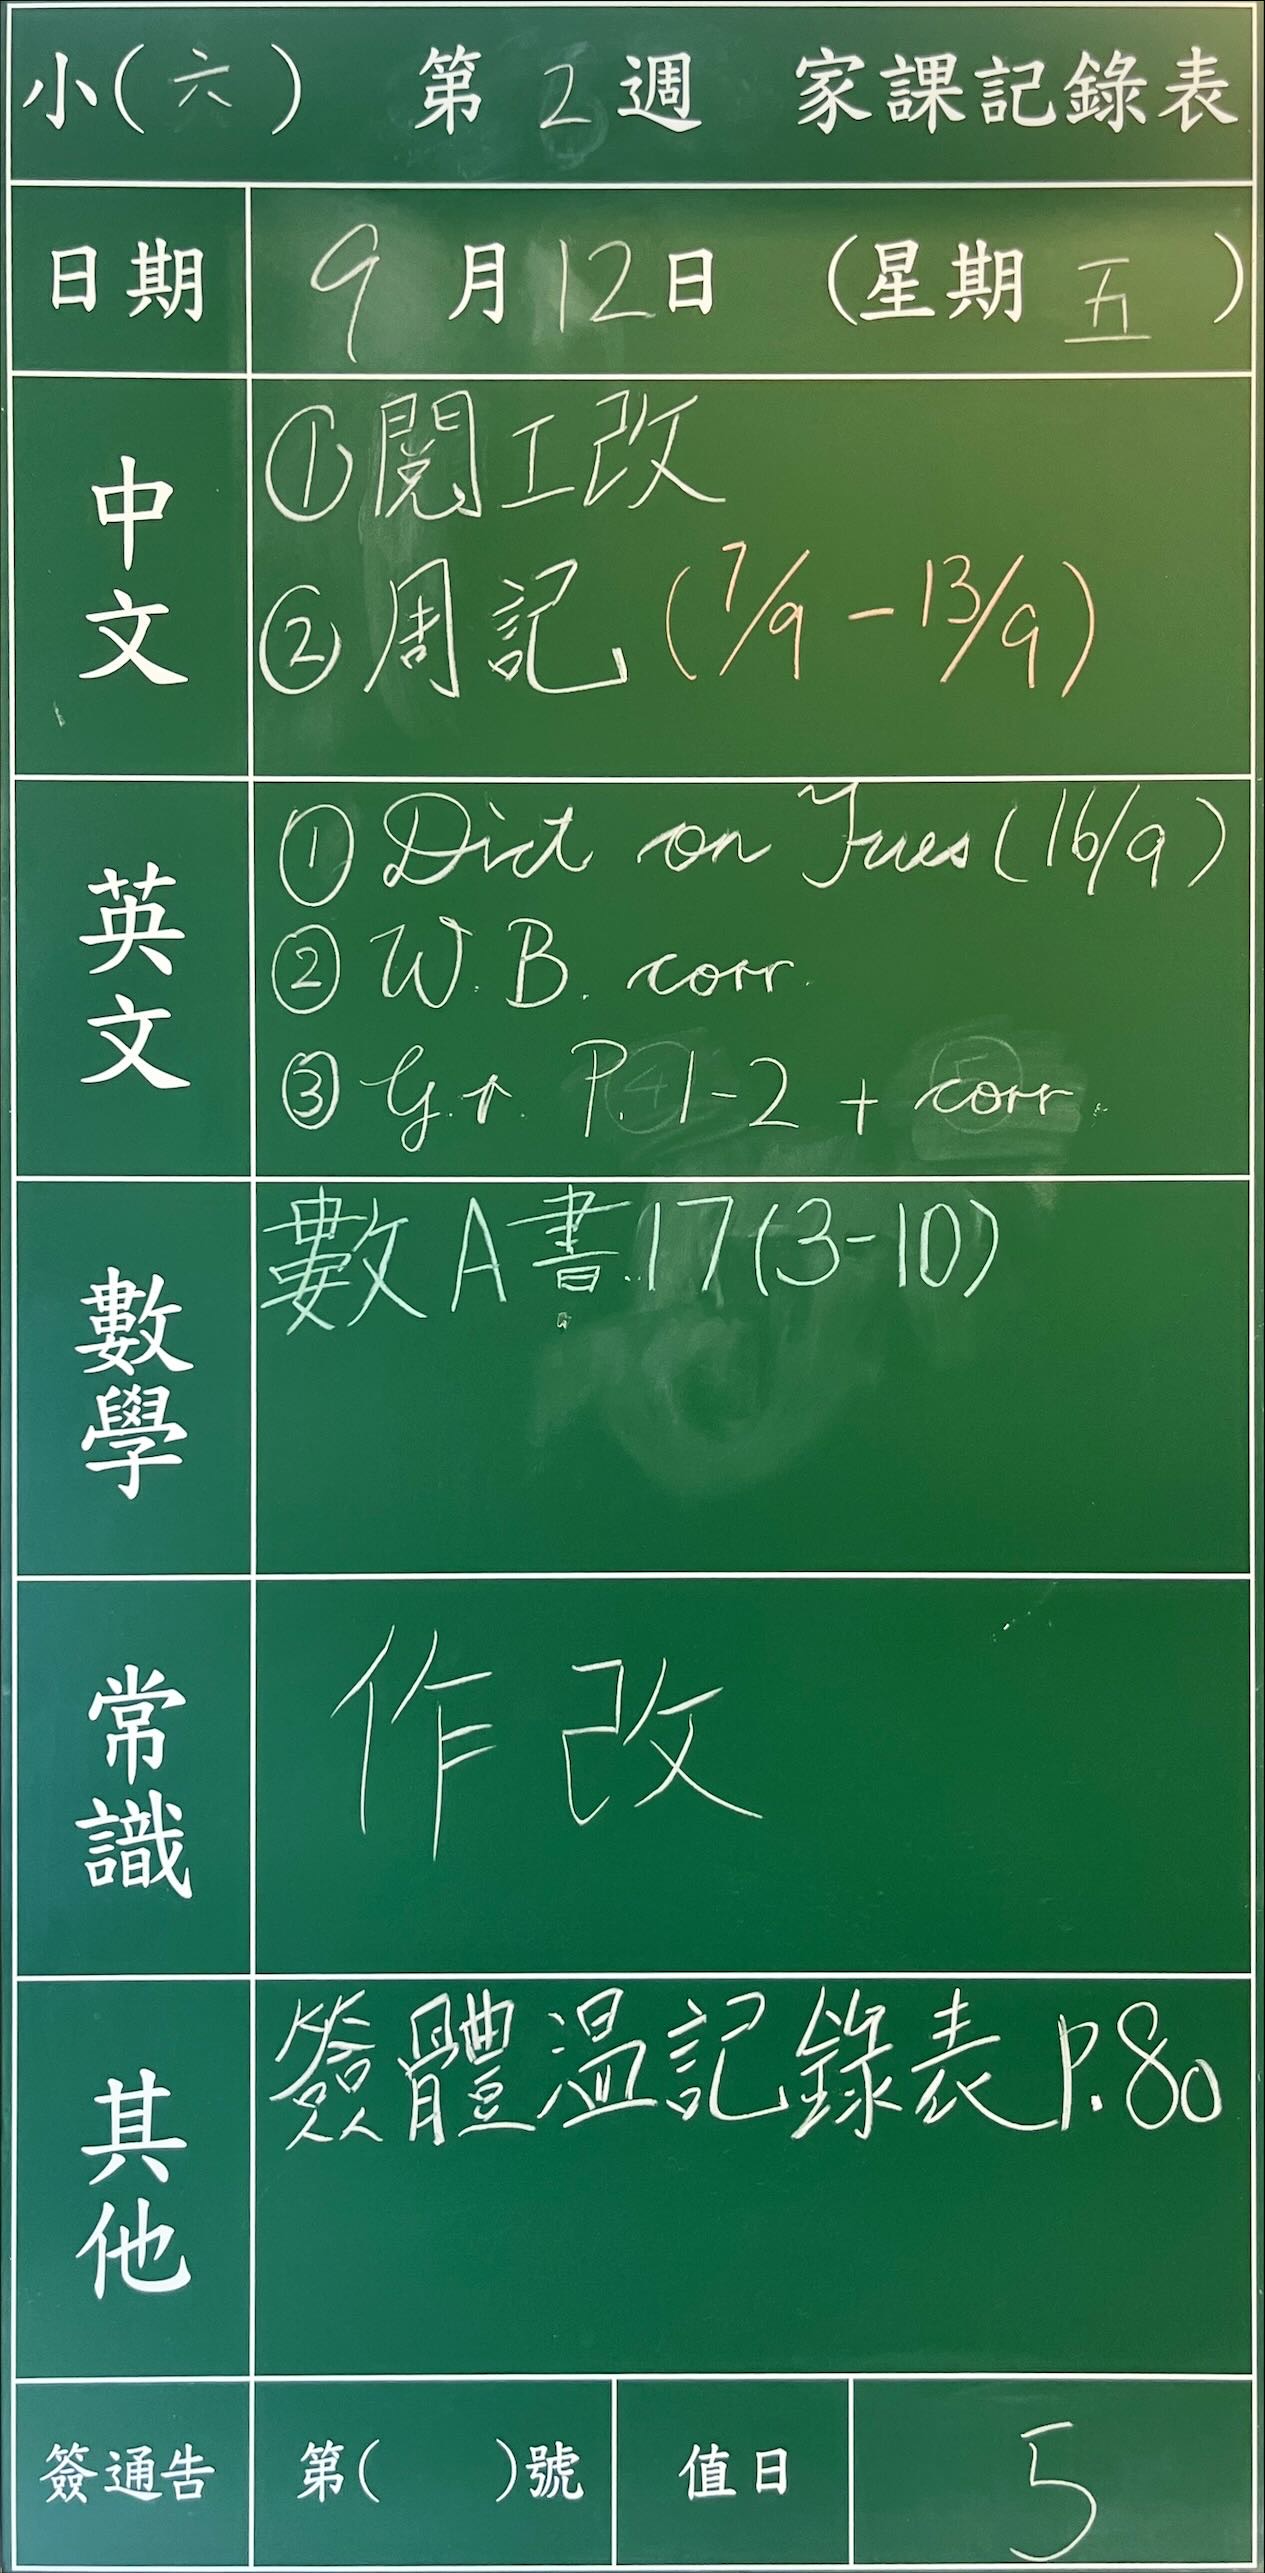 小(六) 第2週 家課記錄表
日期 9月12日 (星期五)
中文
①閱工改
②周記 (7/9-13/9)
英文
① Dict on Tues (16/9)
② W.B. corr.
③ Gr. P.1-2 + corr.
數學
數A書.17(3-10)
常識
作改
其他
簽體溫記錄表 P.80
簽通告 第( )號 值日 5